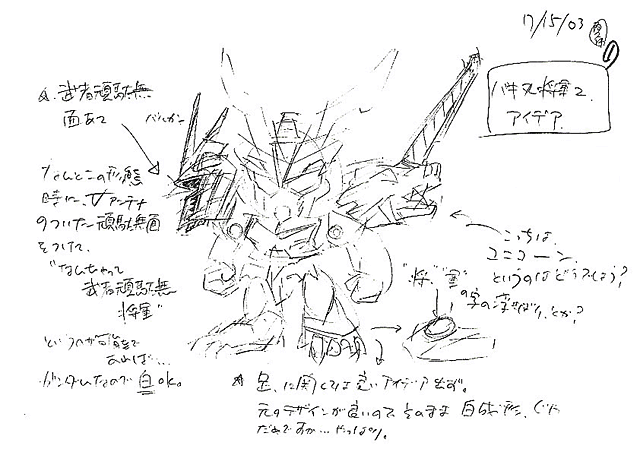 17/15/03
①
バキヌ将軍2
アイデア
☆ 武者頑駄無
面あて
バルカン
なんとこの形態
時に、Vアンテナ
のついた頑駄無面
をつけて、
"なんちゃって
武者頑駄無
将軍"
というのが背景で
あれば…
ガンダムなので白ok。
こっちは、
ユニコーン、
というのはどうでしょう?
"将""軍"
の字の浮きぼり、とか?
☆ 足、に関しては良いアイデア出ず。
元のデザインが良いので そのまま 白成形、じゃ
だめですか… やっぱり。